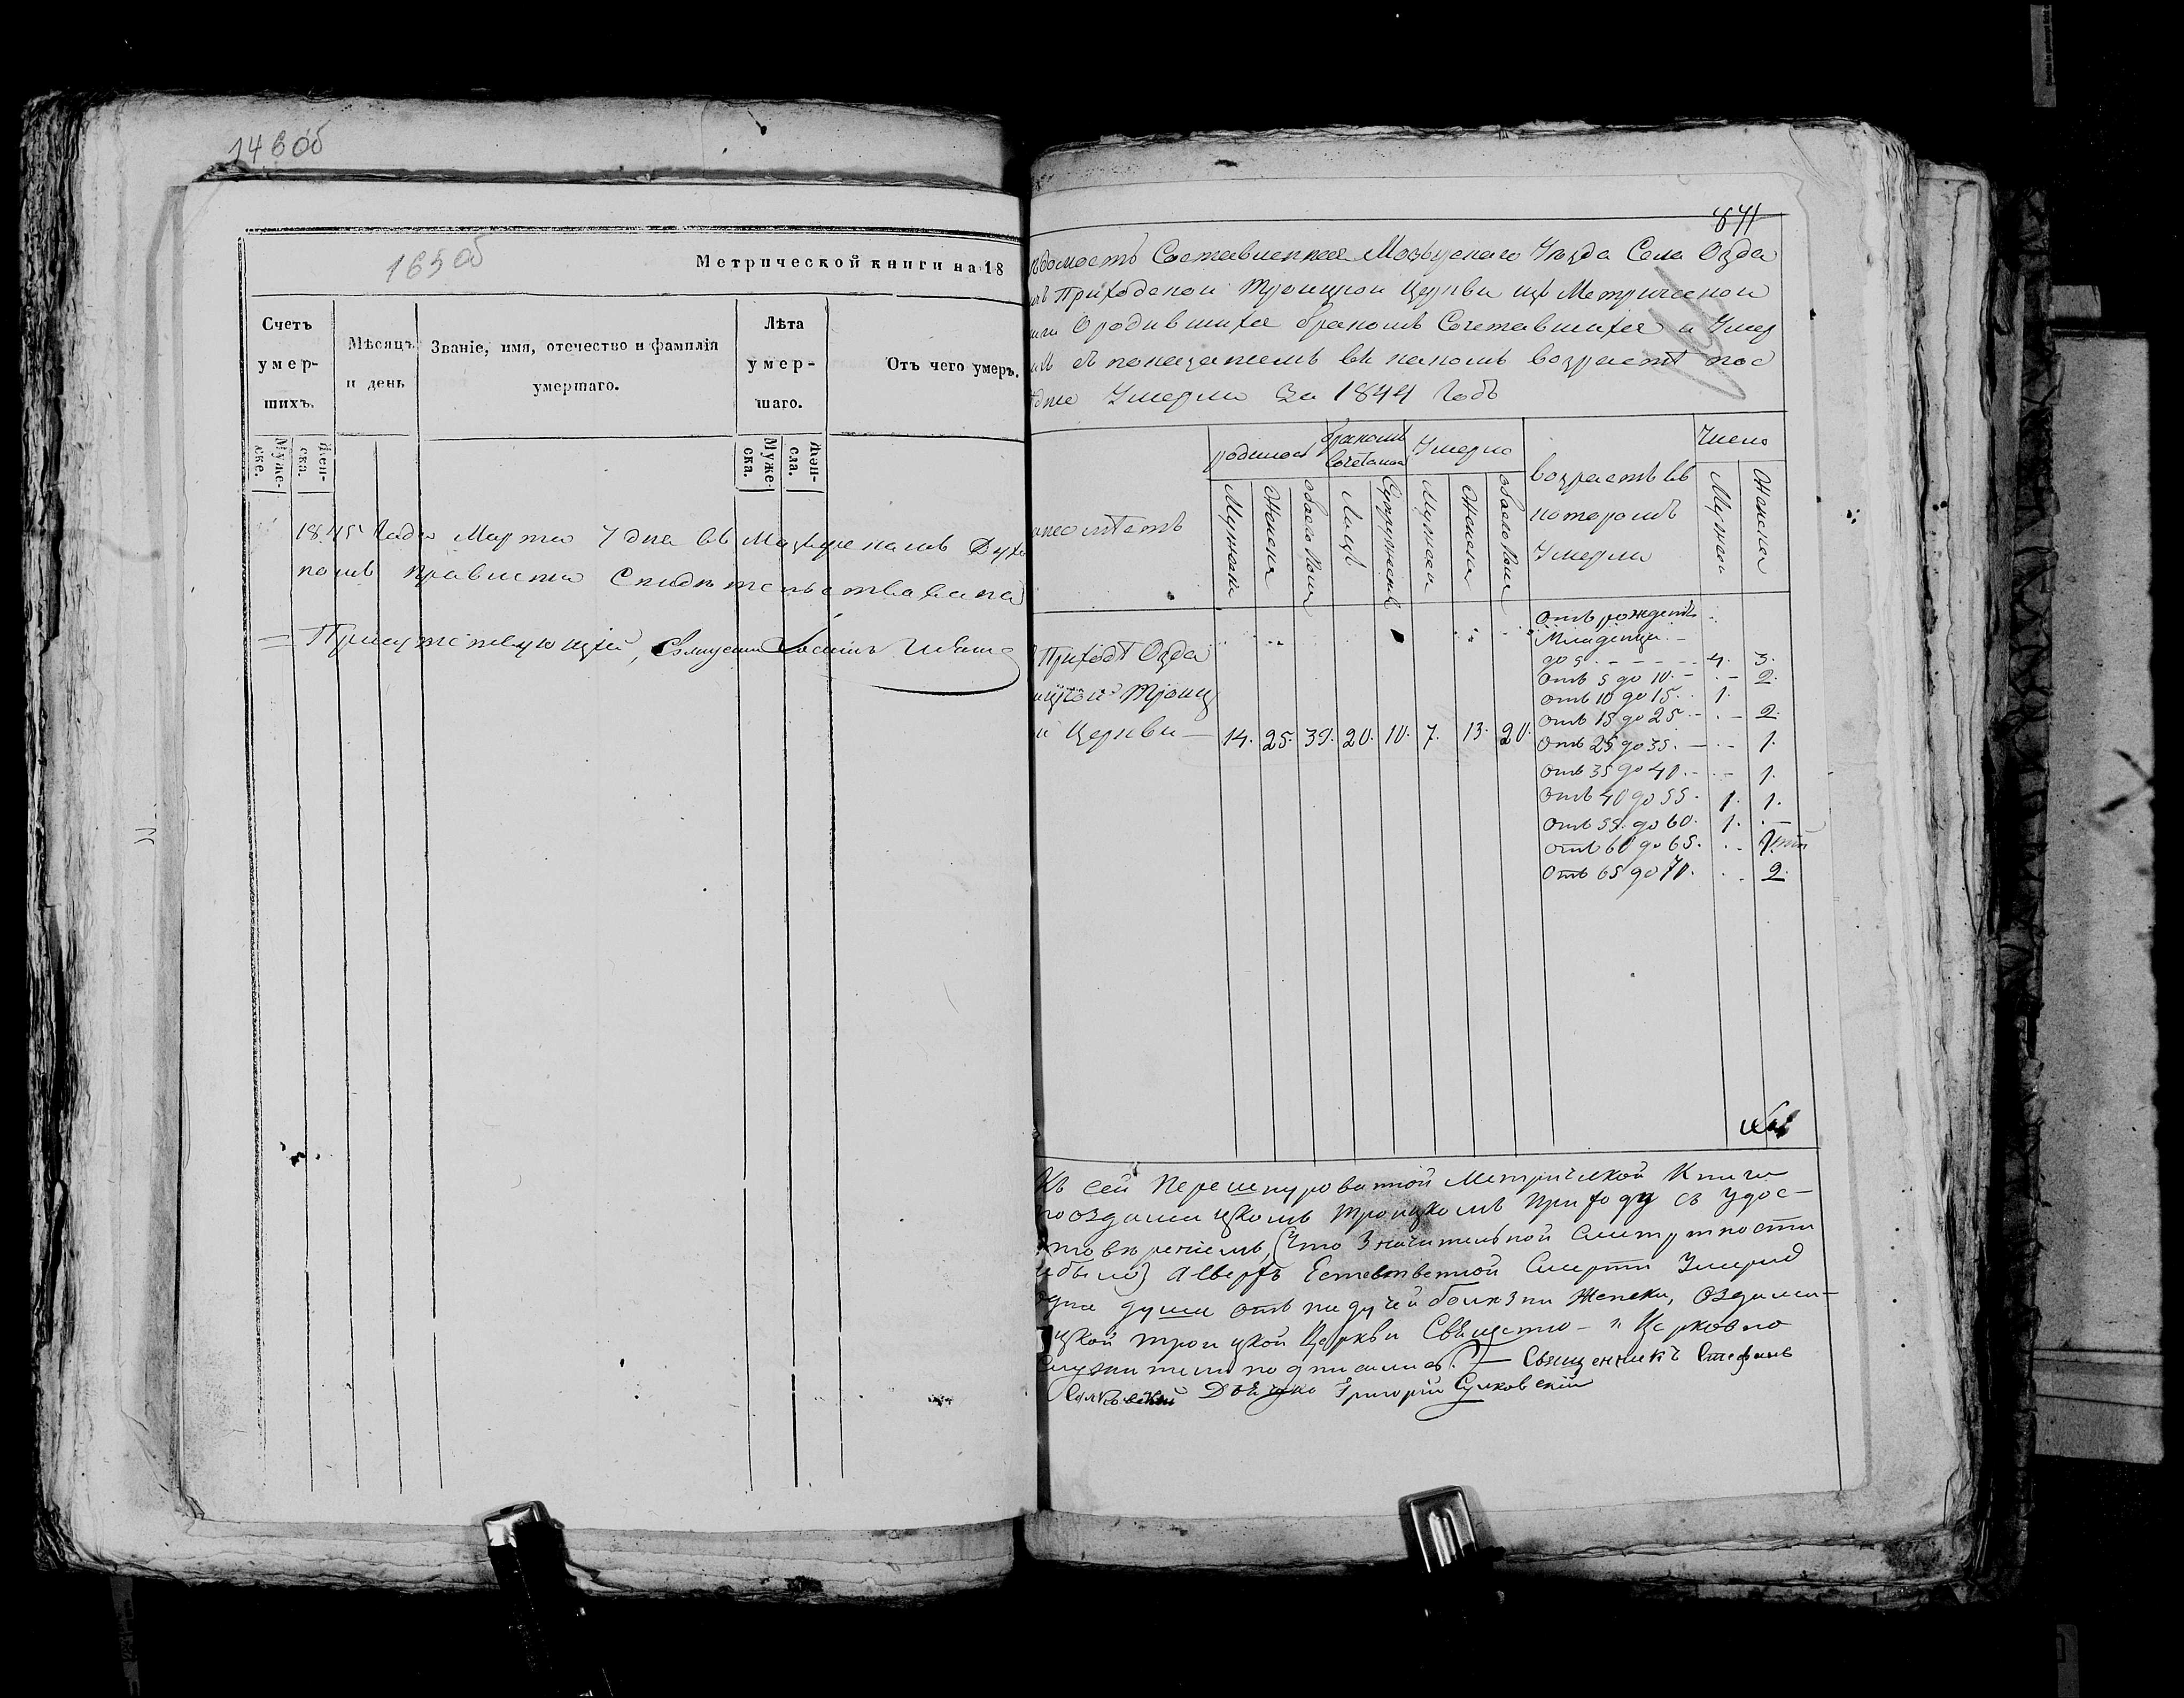 146 об
165 об
Метрической книги на 18
Счетъ умер- шихъ.
Мѣсяцъ и день
Званіе, имя, отечество и фамилія умершаго.
Лѣта умер- шаго.
Отъ чего умеръ.
Муже- ске.
Жен- ска.
Муже- ска.
Жен- сла.
1845 Года Марта 7 дня въ Мозырскомъ Духо
номъ правленіи Свидѣтельствована
Присутствующій, Священникъ
871
ѣдомость Составленная Мозырскаго Уѣзда Села Озда
Приходской Троицкой Церкви изъ Метрической
Ородившихся бракомъ Сочетавшихся и Умер
съ показаніемъ въ какомъ возрастѣ пос
дніе Умерли За 1844 Годъ
родилось
бракомъ Сочеталось
Умерло
возрастъ въ которомъ Умерли
Число
Мужеска
Женска
обоего пола
Лицъ
Супружествъ
Мужеска
Женска
обоего пола
Мужеска
Женска
отъ рожденія
Младенцы
до 5 - - - - 4. 3.
отъ 5 до 10. - . - 2.
отъ 10 до 15. 1.
отъ 15 до 25. - . - 2.
отъ 25 до 35. - . - 1.
отъ 35 до 40. - . - 1.
отъ 40 до 55. 1. 1.
отъ 55. до 60. 1. . -
отъ 60 до 65. . -
отъ 65 до 70. . . 2.
Приход Озда
Троиц
й Церкви — 14. 25. 39. 20. 10. 7. 13. 20.
Къ сей Перешнурованной Метрической Книги
по Оздамицкомъ Троицкомъ Приходу съ удос-
товѣреніемъ, (Что Значительной Смертности
небыло) Сверхъ Естественной Смерти Умерло
одна душа отъ падучей болѣзни Женски, Оздами-
цкой Троицкой Церкви Священно- и Церковно
Служители подписались. — Священникъ Стефанъ
Сулковскій Дьячко Григорій Сулковскій